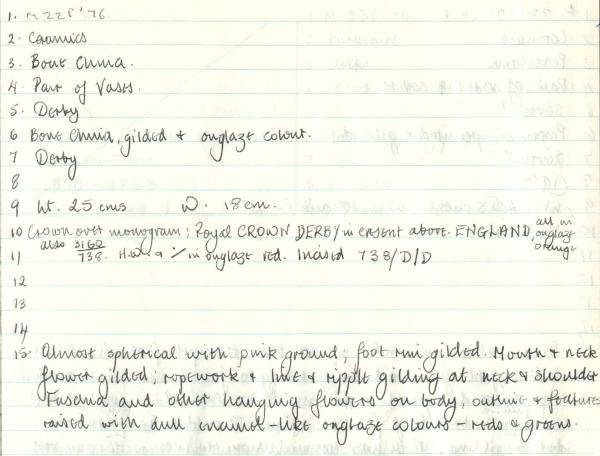 1. M 228 '76.
2. Ceramics
3. Bone China.
4. Pair of Vases.
5. Derby
6 Bone China, gilded + onglaze colour.
7 Derby
8
9 ht. 25 cms W. 18 cm.
10 Crown over monogram; Royal CROWN DERBY in cresent above. ENGLAND, all in onglaze orange
11 also 3160/738. H.W. & %in onglaze red. Incised 738/D/D
12
13
14
15 Almost spherical with pink ground; foot rim gilded. Mouth + neck
flower gilded; ropework + line + ripple gilding at neck & shoulder
Fuschia and other hanging flowers on body, outline & features
raised with dull enamel-like onglaze colours - reds & greens.